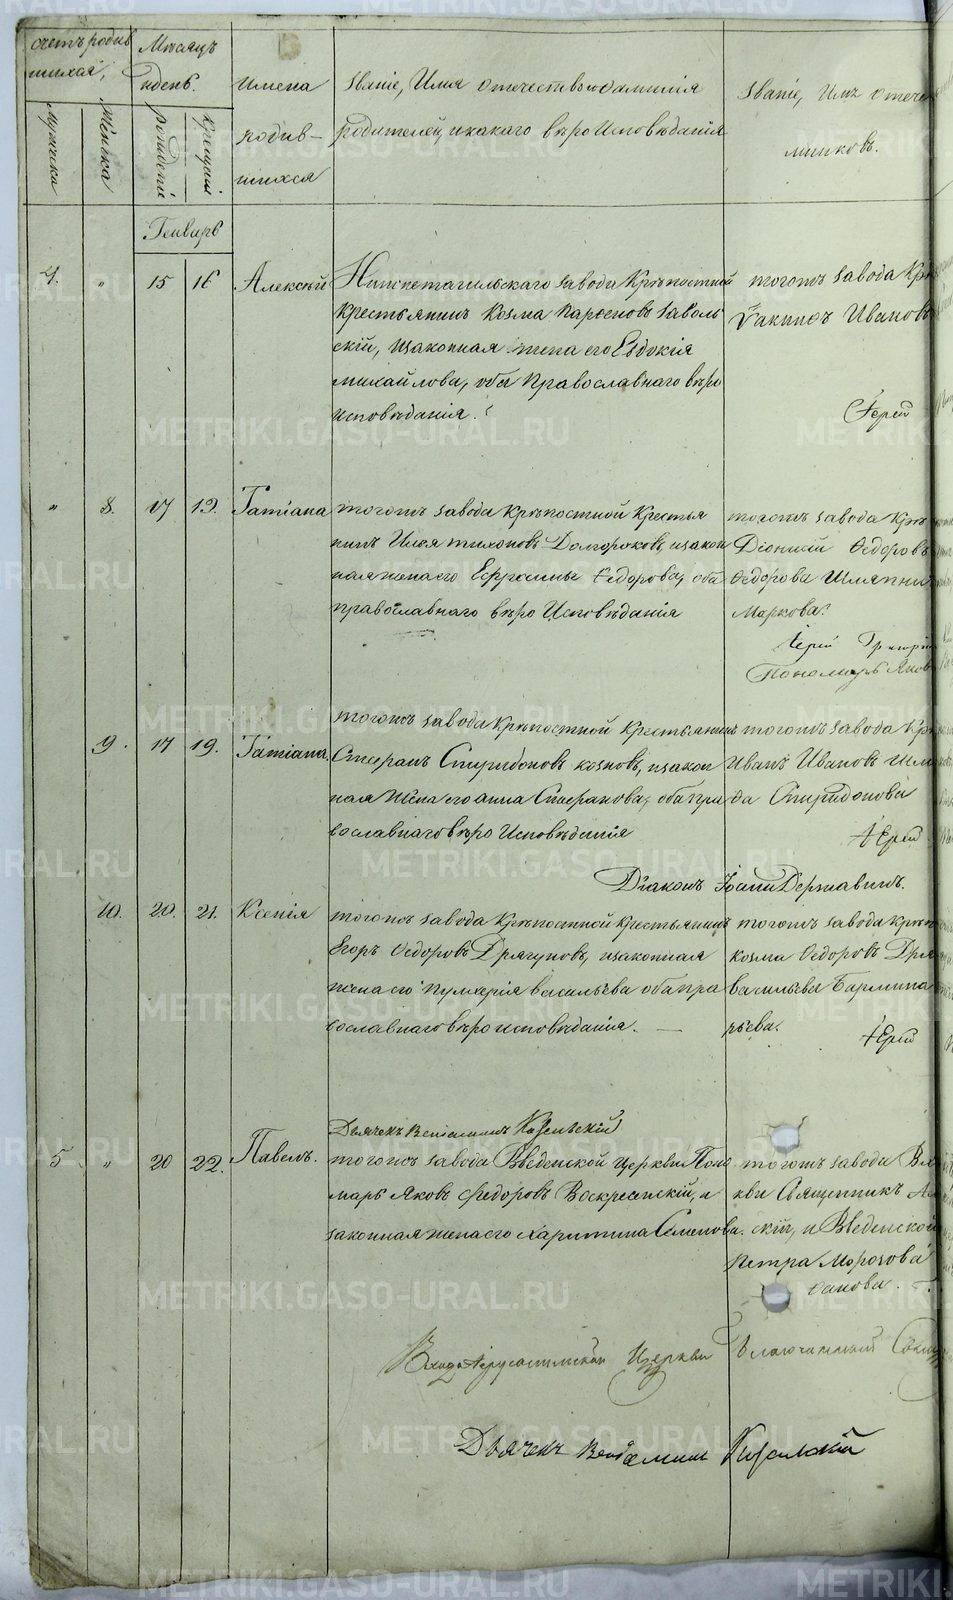 счетъ родив
шихся,
Мѣсяцъ
и день.
мужеска
женска
рожденія
крещенія
имена
родив-
шихся
званіе, Имя отчество и фамилія
родителей, и какаго вѣро Исповѣданія
званіе, Имя отече
мниковъ.
Генварь
4. " 15 16 Алексѣй
Нижнетагильскаго завода Крѣпостной
крестьянинъ Козма Парѳеновъ
скій, и законная жена его Евдокія
михайлова, оба Православнаго вѣро
исповѣданія.
тогожъ завода Крѣ
Іакинѳъ Ивановъ
Іерей
" 8. 17 19. Татіана
тогожъ завода Крѣпостной Крестья
нинъ Илья тихоновъ Долгоруковъ, и закон
ная жена его Ефросинья Ѳедорова, оба
православнаго вѣро Исповѣданія
тогожъ завода Крѣ
Діонисій Ѳедоровъ
Ѳедорова Шляпни
Маркова.
Іерей Григорій
Пономарь Яков
9. 17 19. Татіана.
тогожъ завода Крѣпостной Крестьянинъ
Стефанъ Спиридоновъ козновъ, и закон
ная жена его анна Стефанова, оба пра
вославнаго вѣро Исповѣданія
тогожъ завода Крѣ
Иванъ Ивановъ
да Спиридонова
Іерей
Діаконъ Іоаннъ Державинъ.
10. 20. 21. Ксенія
тогожъ завода Крѣпостной крестьянинъ
Егоръ Ѳедоровъ Драгуновъ, и законная
жена его Пулхерія васильева оба пра
вославнаго вѣро исповѣданія.
тогожъ завода крѣп
козма Ѳедоровъ Дра
васильева Бармина
рьева.
Іерей
Дьячекъ Веніаминъ Козельскій
5 " 20 22. Павелъ.
тогожъ завода Введенской Церкви Поно
марь Яковъ Федоровъ Воскресенскій, и
законная жена его Харитина Семенова.
тогожъ завода Вх
кви Священникъ Ал
скій, и Введенской
Петра Морозова
фанова.
Входо Іерусалимской Церкви Благочинный
Дьячекъ Веніаминъ Козельскій
METRIKI.GASO-URAL.RU